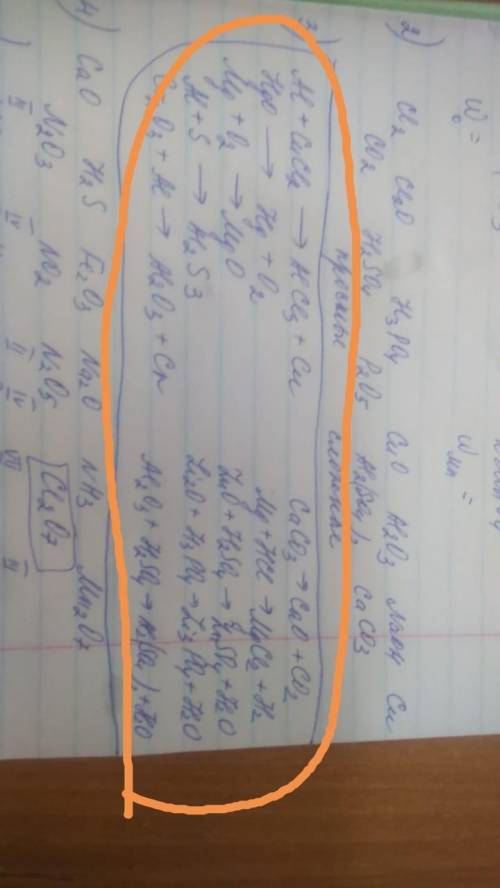 W₀ =
Wмп =
2) Cl₂ Cl₂O H₃PO₄ CuO Al₂O₃ NaOH Cu
CO₂ H₂SO₄ P₂O₅ Al₂(SO₄)₃ CaCO₃
3) простые сложные
Al + CuCl₂ → AlCl₃ + Cu CaCO₃ → CaO + CO₂
HgO → Hg + O₂ Mg + HCl → MgCl₂ + H₂
Mg + O₂ → MgO ZnO + H₂SO₄ → ZnSO₄ + H₂O
Al + S → Al₂S₃ Li₂O + H₃PO₄ → Li₃PO₄ + H₂O
Cr₂O₃ + Al → Al₂O₃ + Cr Al₂O₃ + H₂SO₄ → Al₂(SO₄)₃ + H₂O
4) CaO H₂S Fe₂O₃ Na₂O NH₃ Mn₂O₇
III IV II IV VII IV
N₂O₃ NO₂ N₂O₅ Cl₂O₇